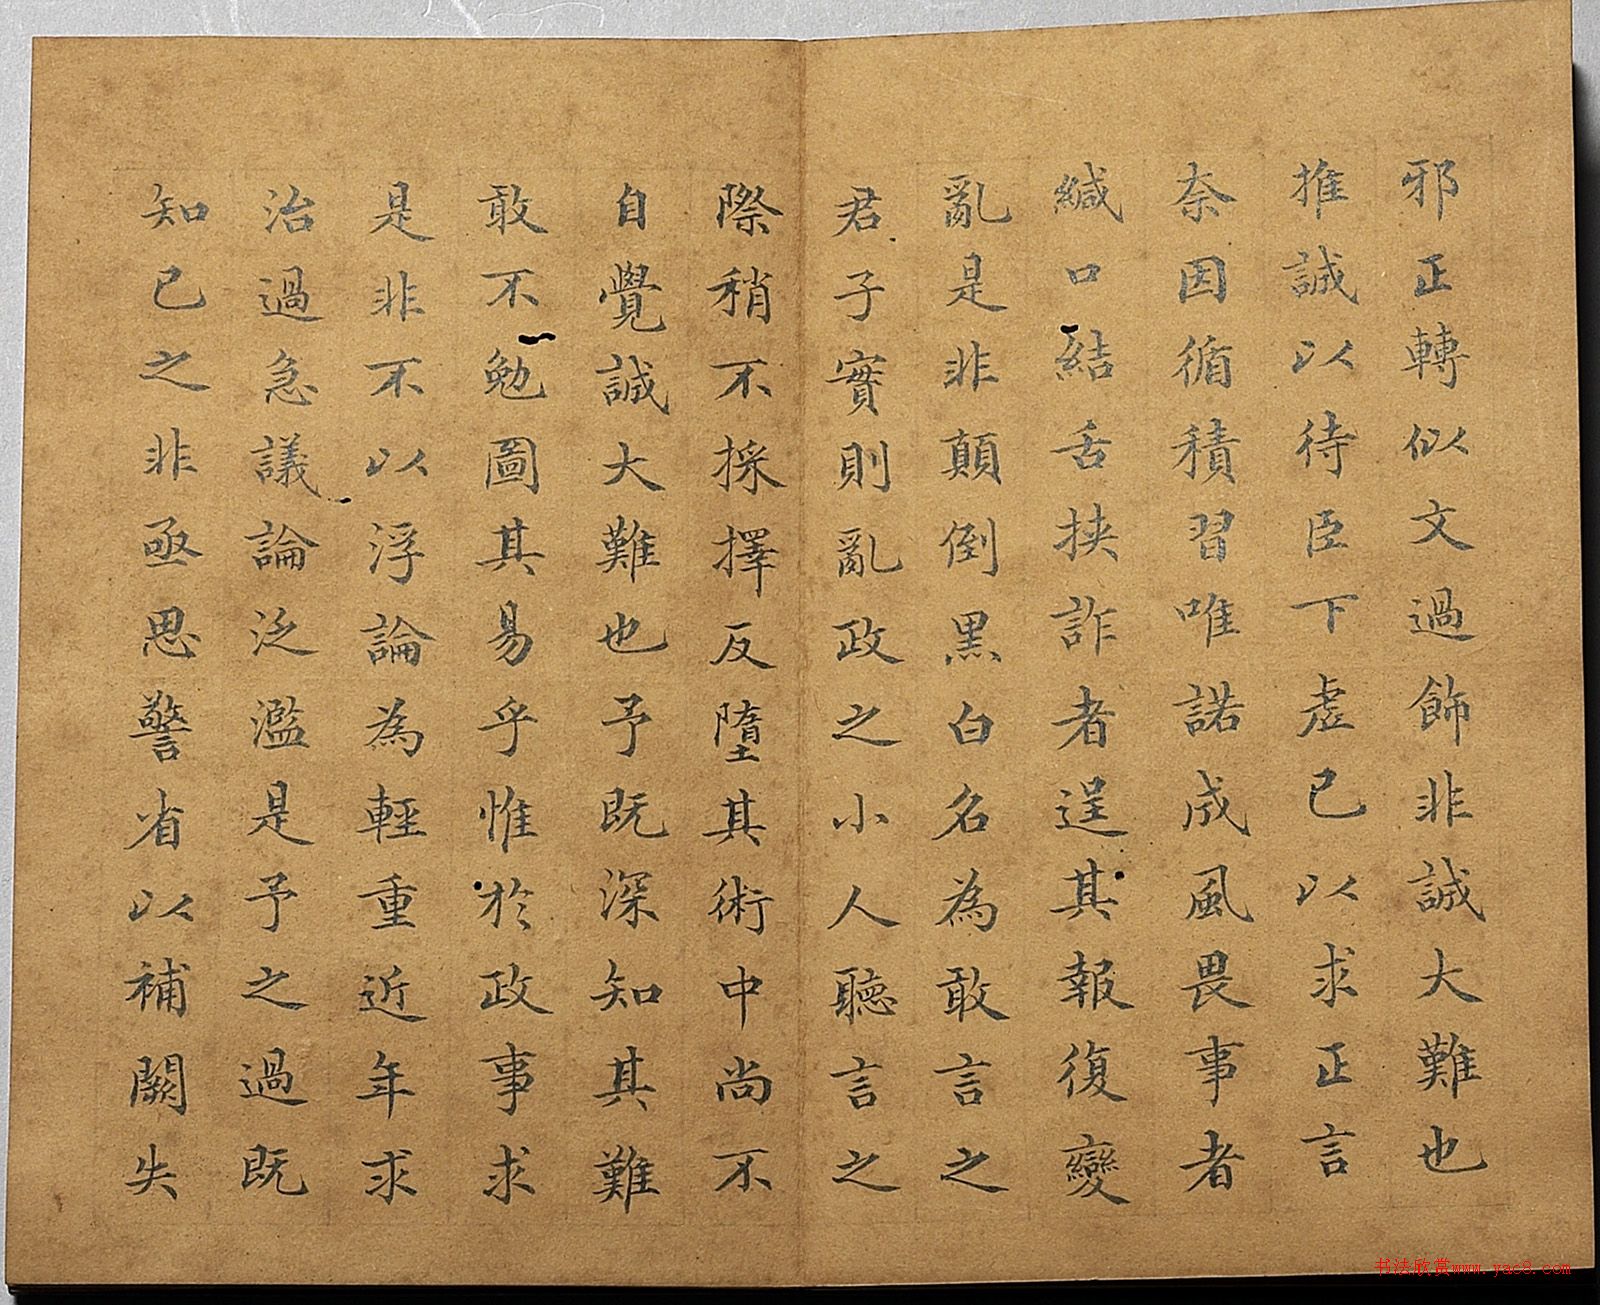 邪正轉似文過飾非誠大難也
推誠以待臣下虚已以求正言
奈因循積習唯諾成風畏事者
緘口結舌挟詐者逞其報復變
亂是非顛倒黑白名為敢言之
君子實則亂政之小人聽言之
際稍不採擇反墮其術中尚不
自覺誠大難也予既深知其難
敢不勉圖其易乎惟於政事求
是非不以浮論為輕重近年求
治過急議論泛濫是予之過既
知已之非亟思警省以補闕失
书法欣赏www.yac8.com